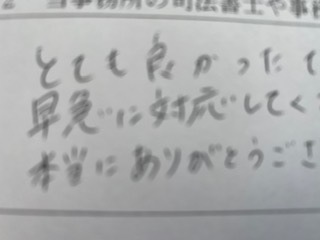 当事務所の司法書士や事務
とても良かったで
早急に対応してく
本当にありがとうござ